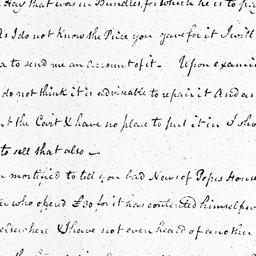 Hay that was in Bundles, for which he is to pay
As I do not know the Price you gave for it I will
to send me an account of it - Upon examin
do not think it is adviseable to repair it And as
the Cart & have no place to put it in I sho
to sell that also -
mortified to tell you bad News of Popes House
who offerd £30 for it has contented himself w
elsewhere & have not even heard of another